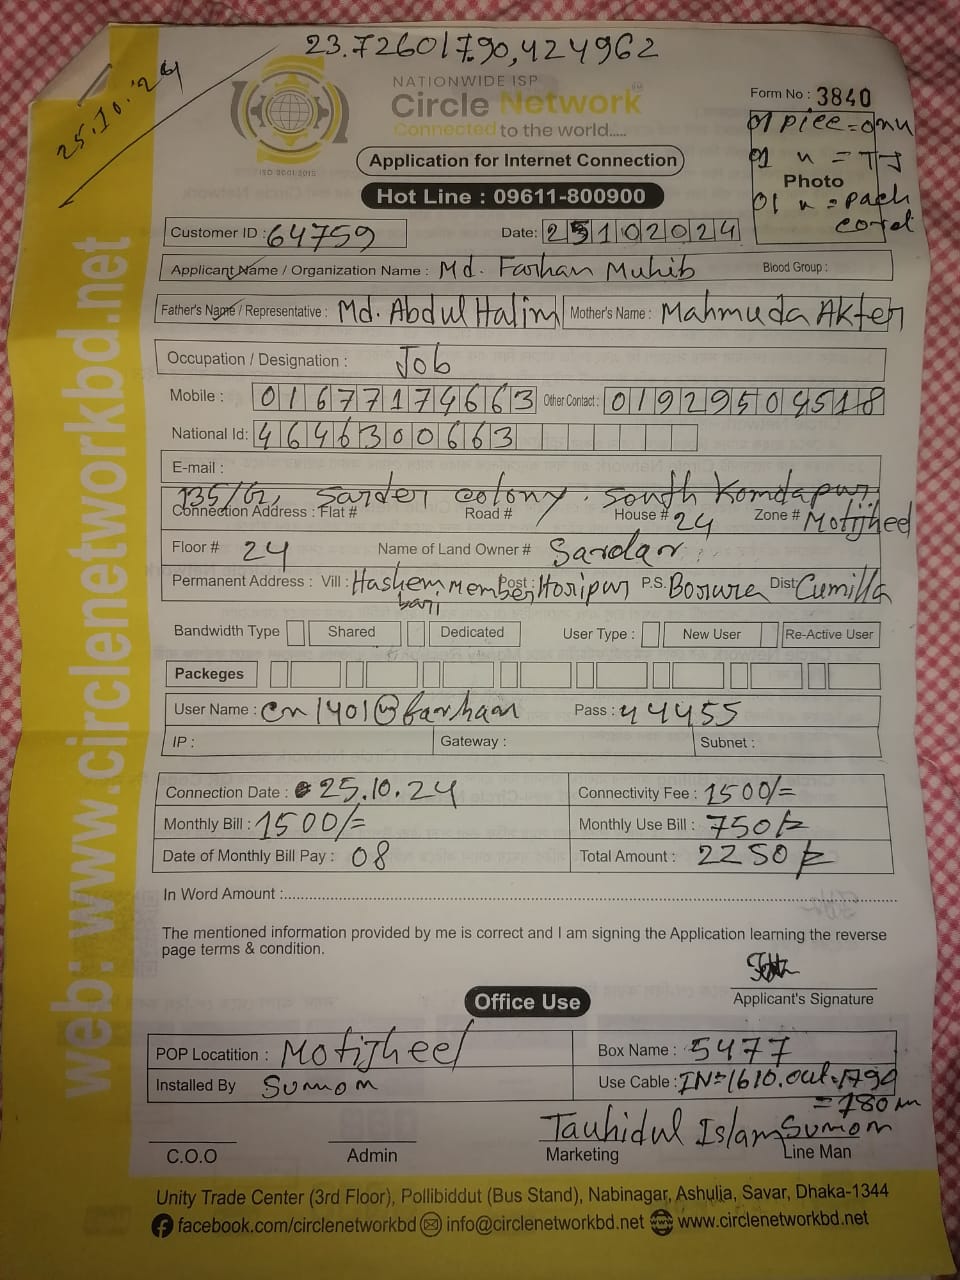 23.7260179.90,424962
25.10.'24
NATIONWIDE ISP
Circle Network
Connected to the world.....
ISO 9001:2015
Form No : 3840
01 piece = onu
01 u = TJ
Photo
01 u = pach cord
Application for Internet Connection
Hot Line : 09611-800900
Customer ID : 64759 Date: 25102024
Applicant Name / Organization Name : Md. Farhan Muhib Blood Group :
Father's Name / Representative : Md. Abdul Halim Mother's Name : Mahmuda Akter
Occupation / Designation : Job
Mobile : 01677174663 Other Contact : 01929504518
National Id: 4646300663
E-mail :
135/G, Sarder colony. South Komdapur
Connection Address : Flat # Road # House # 24 Zone # Motijheel
Floor # 24 Name of Land Owner # Sardar
Permanent Address : Vill : Hashem member bari Post : Horipur P.S. Borura Dist: Cumilla
Bandwidth Type Shared Dedicated User Type : New User Re-Active User
Packeges
User Name : cn1401@farhan Pass : 44455
IP : Gateway : Subnet :
Connection Date : 25.10.24 Connectivity Fee : 1500/=
Monthly Bill : 1500/= Monthly Use Bill : 750/=
Date of Monthly Bill Pay : 08 Total Amount : 2250/=
In Word Amount :
The mentioned information provided by me is correct and I am signing the Application learning the reverse
page terms & condition.
Applicant's Signature
Office Use
POP Locatition : Motijheel Box Name : 5477
Installed By Sumon Use Cable : IN=1610.out=1790
=180m
Tauhidul Islam Sumon
C.O.O Admin Marketing Line Man
Unity Trade Center (3rd Floor), Pollibiddut (Bus Stand), Nabinagar, Ashulia, Savar, Dhaka-1344
facebook.com/circlenetworkbd info@circlenetworkbd.net www.circlenetworkbd.net
web: www.circlenetworkbd.net